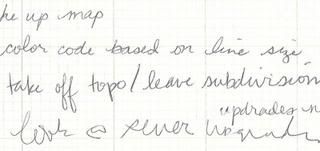 ke up map
color code based on line size
take off topo/leave subdivision
upgrades
look @ sewer upgrades